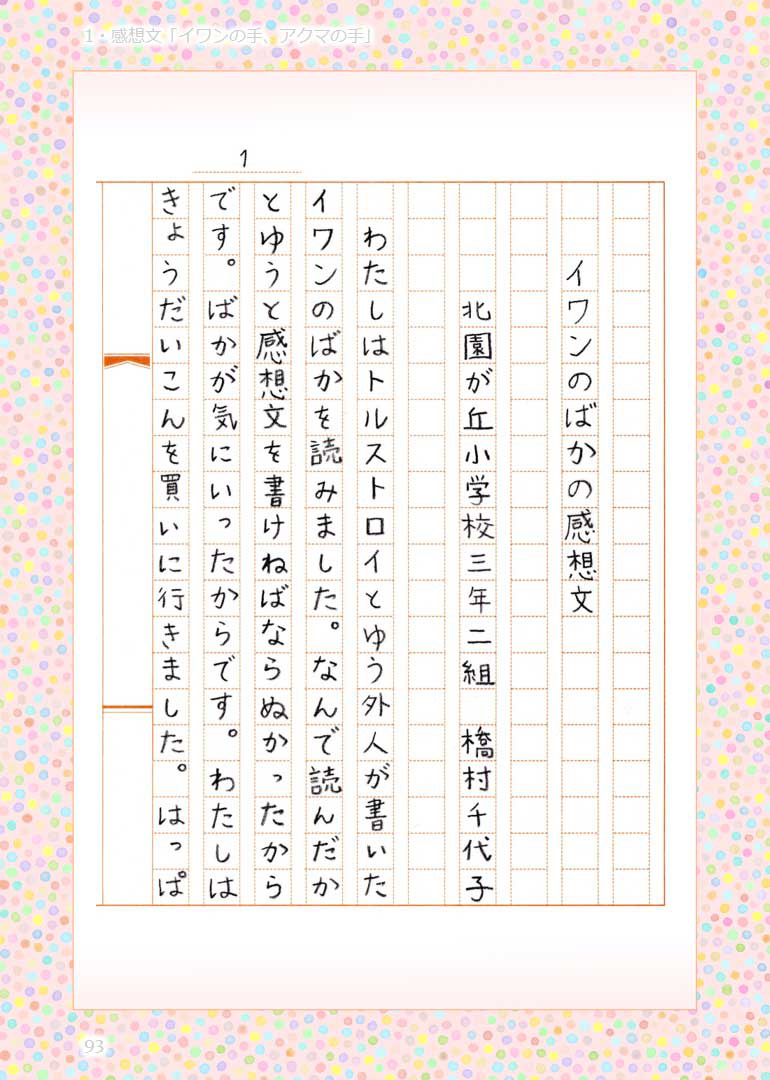 1・感想文「イワンの手、アクマの手」
1
イワンのばかの感想文
北園が丘小学校三年二組　橋村千代子
わたしはトルストロイとゆう外人が書いた
イワンのばかを読みました。なんで読んだか
とゆうと感想文を書けねばならぬかったから
です。ばかが気にいったからです。わたしは
きょうだいこんを買いに行きました。はっぱ
93